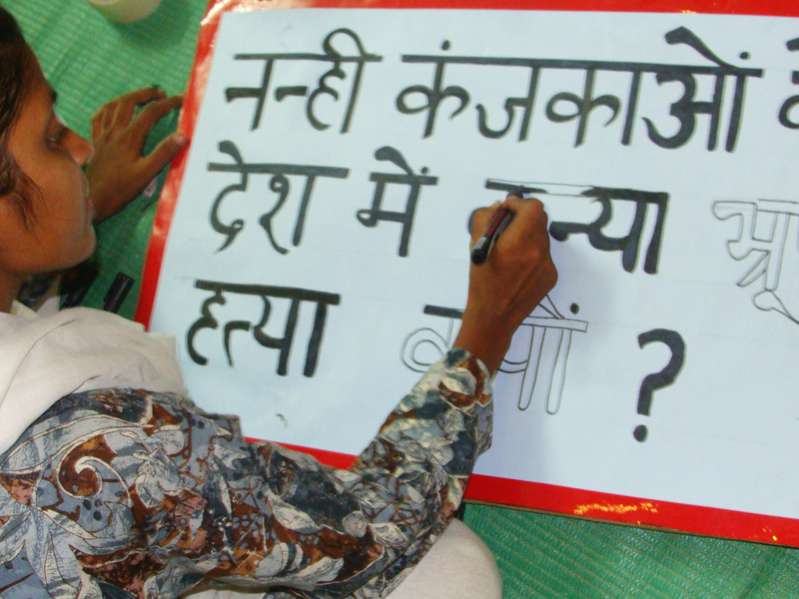 नन्ही कंजकाओं के
देश में कन्या भ्रूण
हत्या क्यों ?